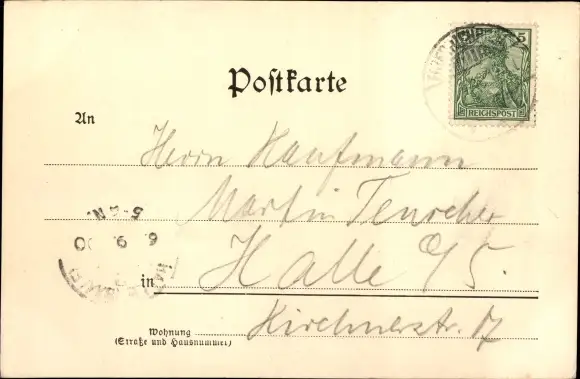 Postkarte
5
REICHSPOST
An
Herrn Kaufmann
Martin
5-6 N.
6. 9. 00
in Halle a/S.
Wohnung
(Straße und Hausnummer)
Kirchnerstr. 17